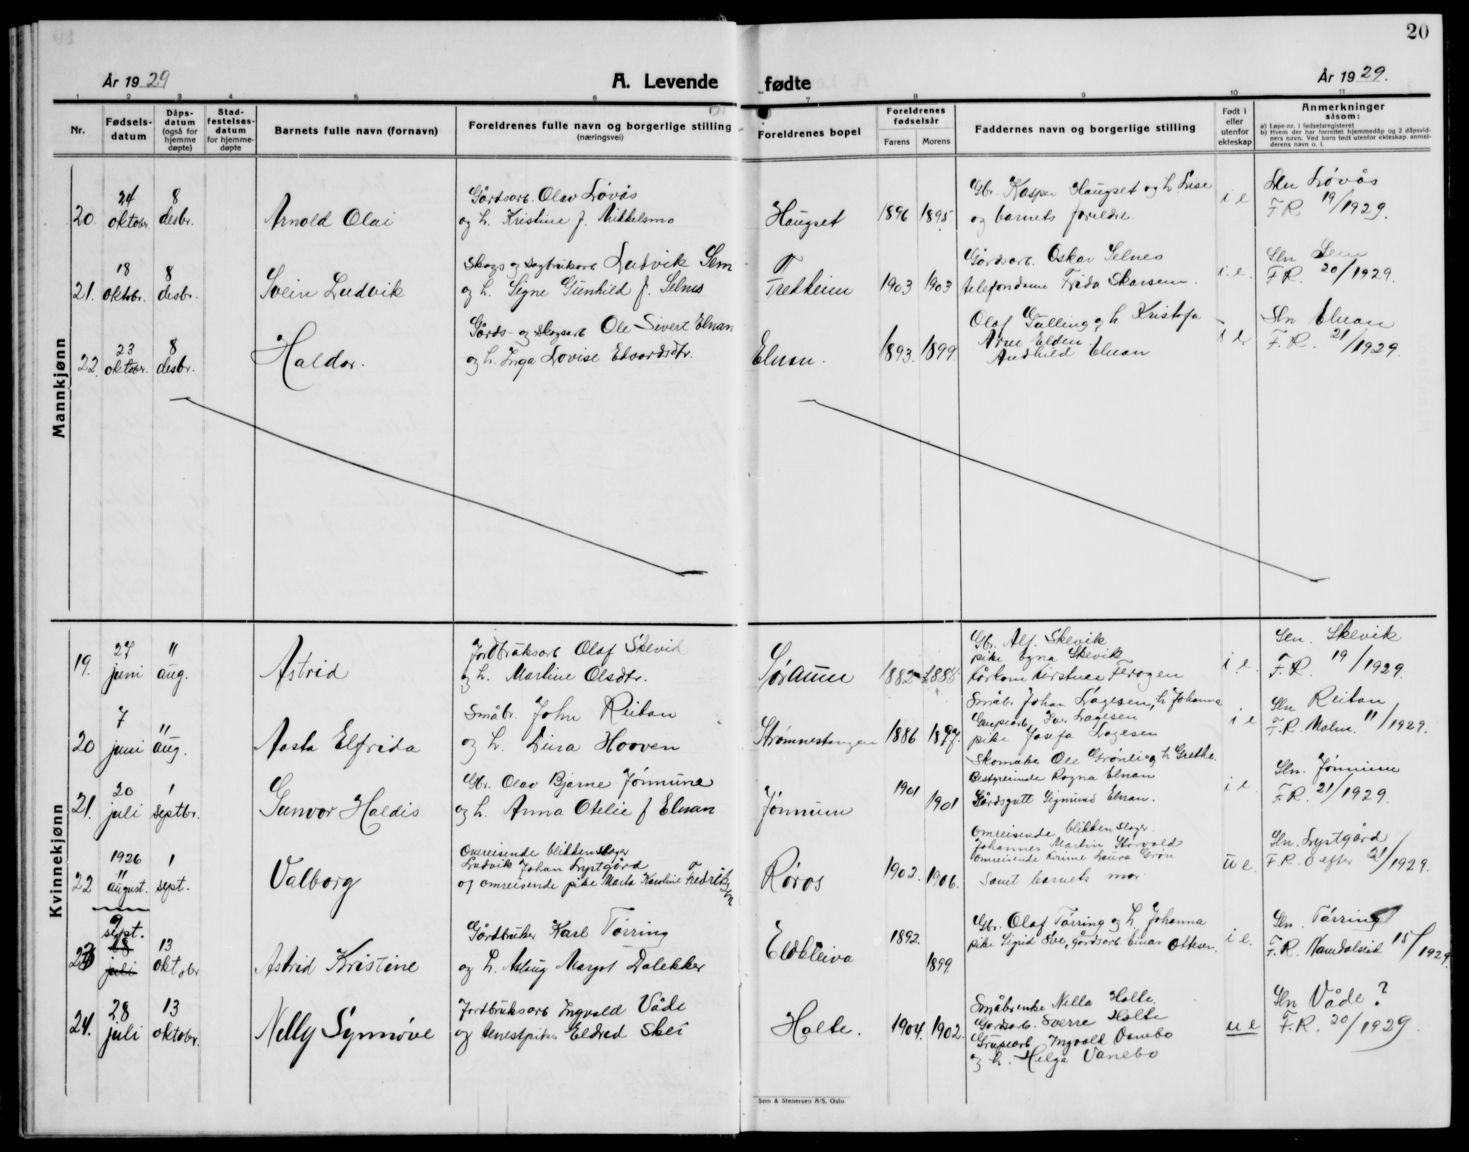 20
År 1929
A. Levende fødte
År 1929.
1 2 3 4 5 6 7 8 9 10 11
Nr.
Fødsels-datum
Dåps-datum (også for hjemme døpte)
Stad-festelses-datum for hjemme-døpte
Barnets fulle navn (fornavn)
Foreldrenes fulle navn og borgerlige stilling (næringsvei)
Foreldrenes bopel
Foreldrenes fødselsår
Farens Morens
Faddernes navn og borgerlige stilling
Født i eller utenfor ekteskap
Anmerkninger såsom:
a) Løpe-nr. i fødselsregisteret
b) Hvem der har forrettet hjemmedåp og 2 dåpsvid-
ners navn. Ved barn født utenfor ekteskap anmel-
derens navn o. l.
Mannkjønn
20. 24 oktobr. 8 desbr. Arnold Olai
Gårdsarb. Olav Løvås
og h. Kristine f. Mittelsmo
Haugset 1896 1895
Gbr. Kasper Haugset og h. Lise
og barnets foreldre
i e
Sln Løvås
F.R. 19/1929.
21. 18 oktobr. 8 desbr. Svein Ludvik
Skogs og Sagbruksarb Ludvik Sem
og h. Signe Gunhild f. Selnes
Tretheim 1903 1903
Gårdsarb. Oskar Selnes
telefondame Frida Skarsem.
i. e.
Sln Sem
F.R. 20/1929.
22. 23 oktobr. 8 desbr. Haldor.
Gårds- og skogsarb Ole Sivert Elnan
og h. Inga Lovise Edvardsdtr.
Elnan. 1893. 1899
Olaf Gulling og h Kristofa
Arne Elden
Andhild Elnan
Sln Elnan
F.R. 21/1929.
Kvinnekjønn
19. 27 juni 11 aug. Astrid
Jordbruksarb Olaf Skevik
og h. Martine Olsdtr.
Søraunе 1882 1888
Gbr. Alf. Skevik
pike Egna Skevik
i e.
Sln. Skevik
F.R. 19/1929.
20 7 juni 11 aug. Aasta Elfrida
Småbr. John Reitan
og h. Dina Hooven
Strømnestangen 1886 1897.
Småbr. Johan Dagesen, h Johanna
Grubearb. Iver Dagesen
pike Josefa Dagesen
i e
Sln Reitan
F.R. Malm 11/1929.
21. 20 juli 1 septbr. Gunvor Haldis
Gbr. Olav Bjarne Jønnume
og h. Anna Otelie f Elnan
Jønnum 1901 1901
Skomaker Ole Grønli og h Grethe.
Bestyrerinde Ragna Elnan
Gårdsgutt Sigmund Elnan.
i e.
Sln. Jønnum
F.R. 21/1929.
22 1926 11 august. 1 sept. Valborg
Omreisende blikkenslager
Ludvik Johan Lystgård
og omreisende pike Marta Karoline Fredriksen
Røros 1902. 1906.
omreisende blikkenslager
Johannes Martin Storvald
omreisende Laura Gron
samt barnets mor
u e.
Sln. Lystgård
F.R. 0 efter 21/1929.
23 9 sept. 28 juli 13 oktobr Astrid Kristine
Gårdbruker Karl Tørring
og h. Aslaug Margot Dalekker
Eldkleiva 1892. 1899
Gbr. Olaf Tørring og h. Johanna
pike Sigrid Sve, gårdsarb Einar Ottesen.
i e.
Sln. Tørring
F.R. Namdalseid 15/1929
24. 28 juli 13 oktobr. Nelly Synnøve
Jordbruksarb Ingvald Våde
og tenestpike Eldrid Skei
Holte. 1904. 1902.
Småbrenke Nella Holte.
Gårdsarb. Sverre Holte
Grubearb Ingvald Vanebo
og h. Helga Vanebo
u e
Sln Våde?
F.R. 20/1929.
Sem & Stenersen A/S, Oslo